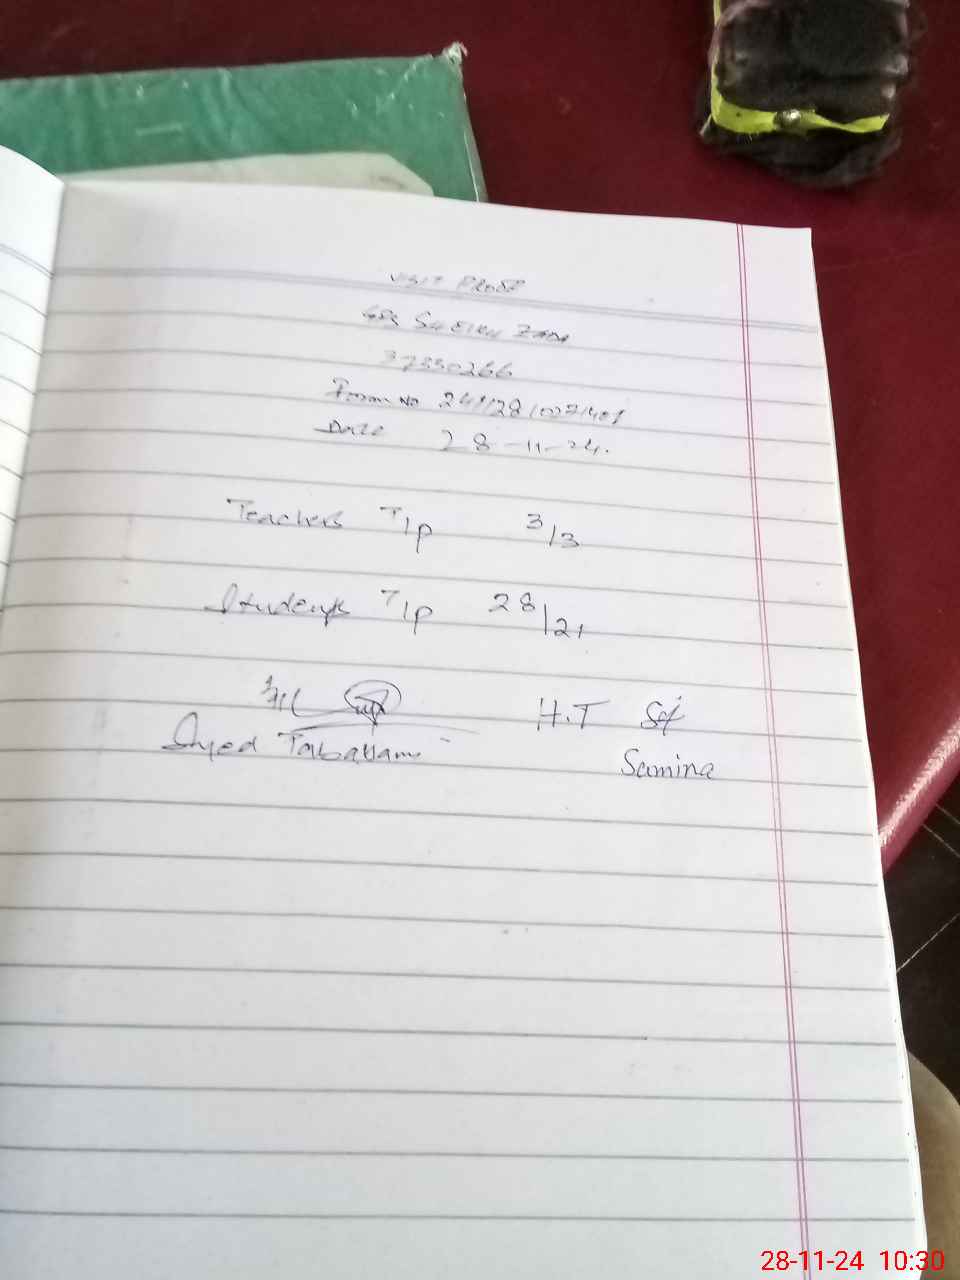 VISIT PROOF
GPS SHEIKH ZADA
37330266
Form No
Date 28-11-24.
Teachers T/p 3/3
Students T/p 28/21
Syed
H.T
Samina
28-11-24 10:30